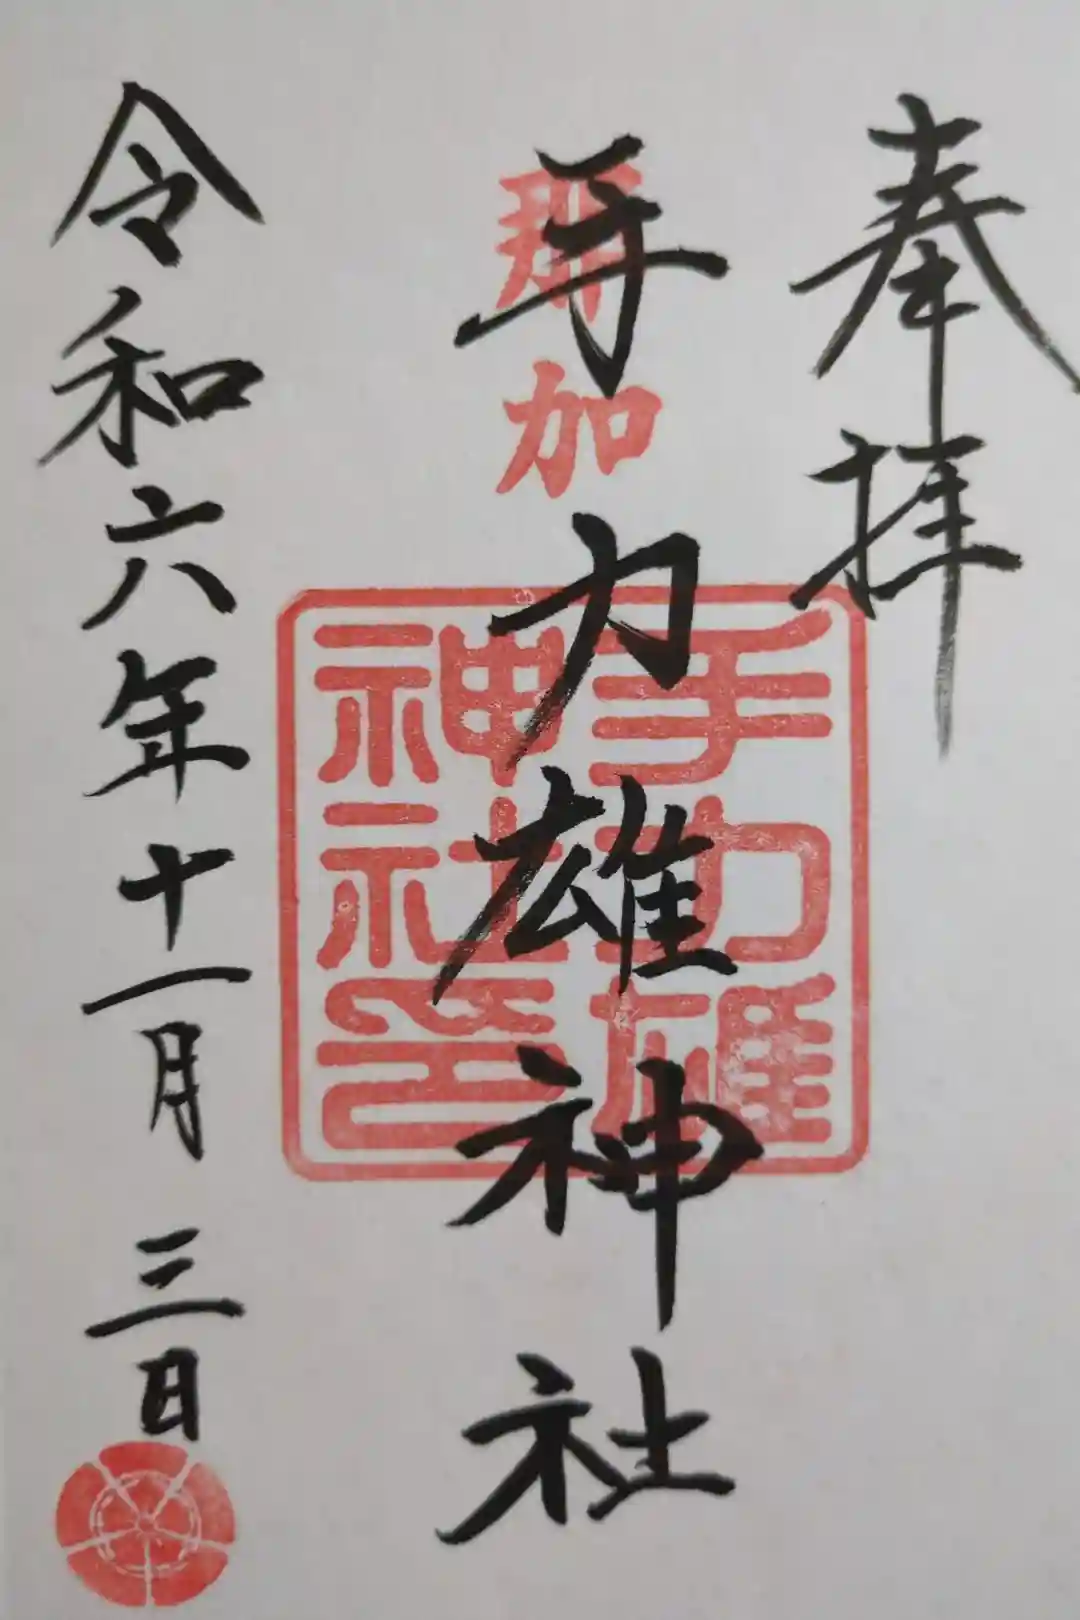 奉拝
那加
手力雄神社
手力雄
神社印
令和六年十一月三日